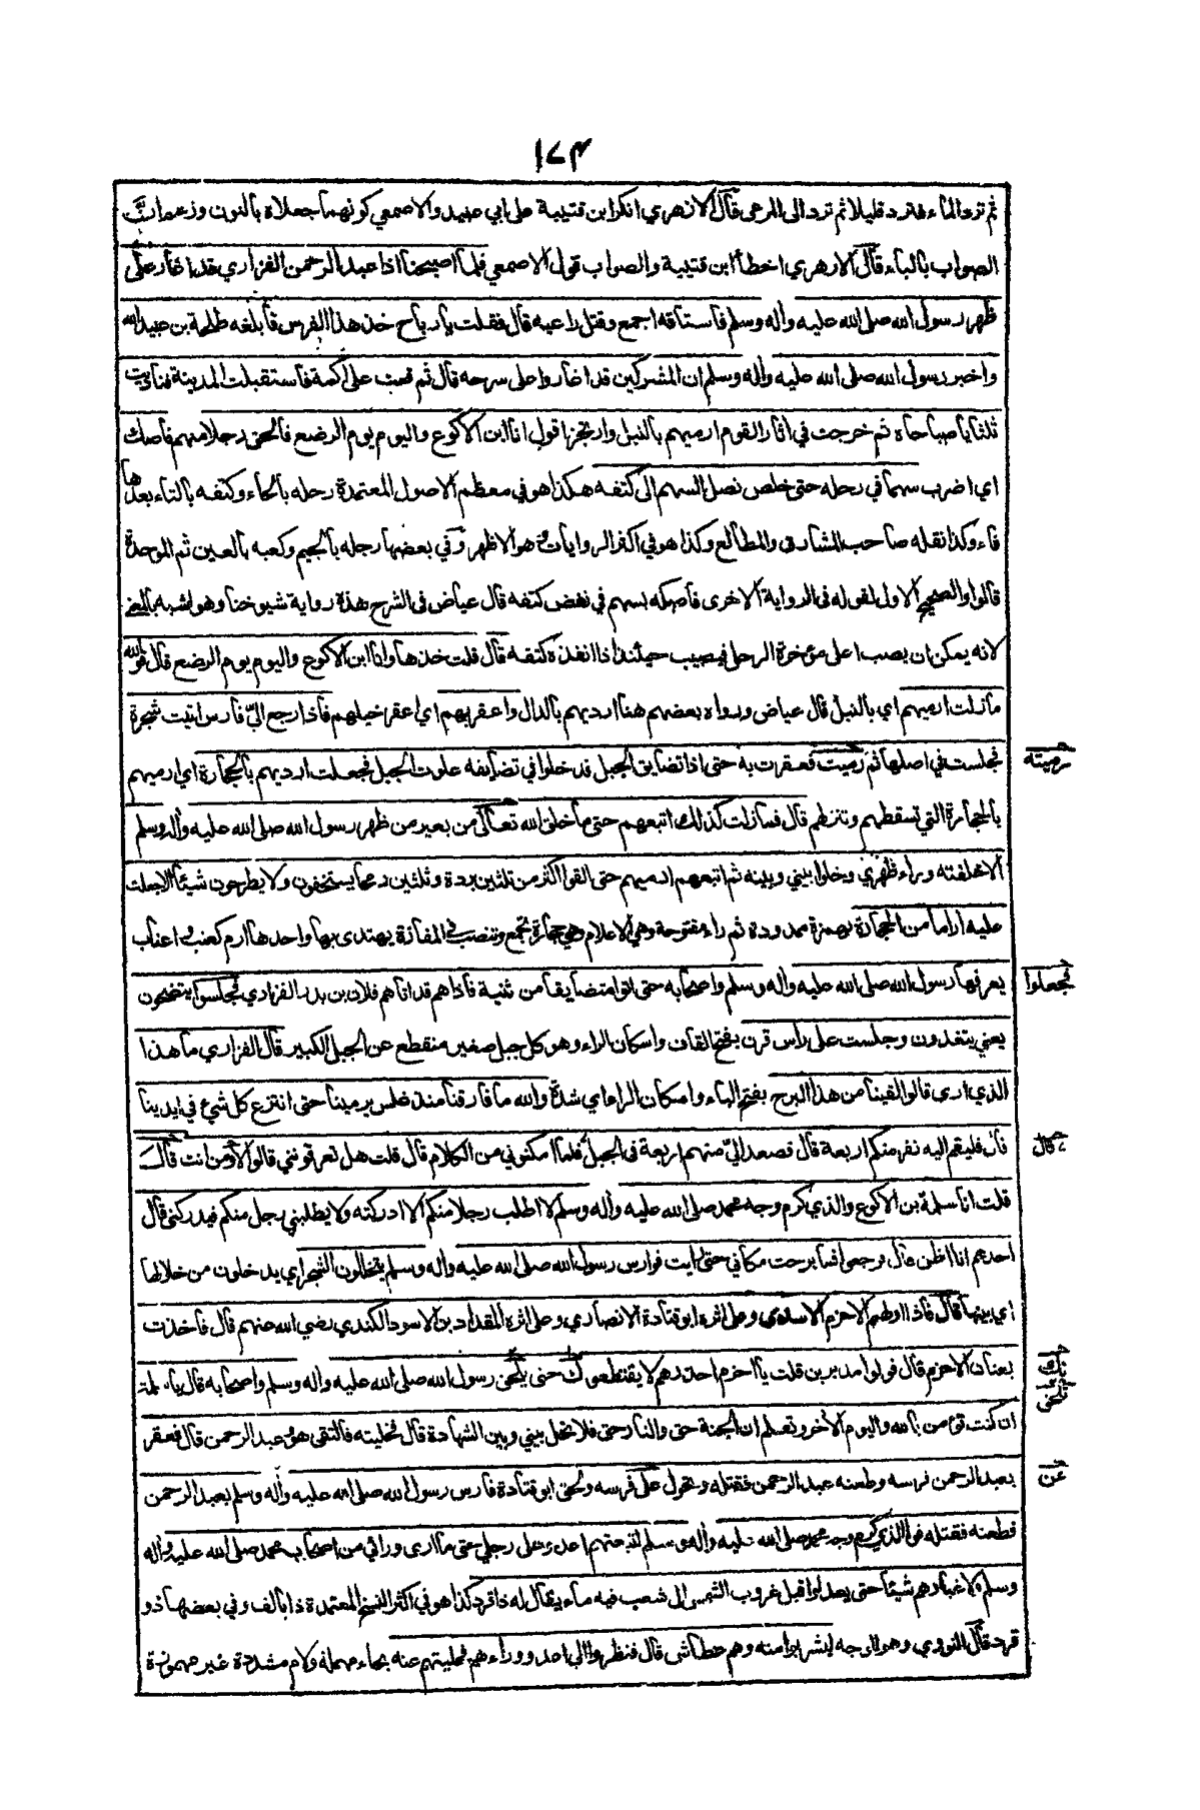 ١٧٣
ثم ترد الماء فترد قليلا ثم ترد الى المرعى قال الازهري انكر ابن قتيبة على ابي عبيد والاصمعي كونهما جعلاه بالنون وزعم ان
الصواب بالباء قال الازهري اخطأ ابن قتيبة والصواب قول الاصمعي فلما اصبحنا اذا عبد الرحمن الفزاري قد اغار على
ظهر رسول الله صلى الله عليه واله وسلم فاستاقه اجمع وقتل راعيه قال فقلت يا رباح خذ هذا الفرس فابلغه طلحة بن عبيد الله
واخبر رسول الله صلى الله عليه واله وسلم ان المشركين قد اغاروا على سرحه قال ثم قمت على اكمة فاستقبلت المدينة فناديت
ثلثا يا صباحاه ثم خرجت في اثار القوم ارميهم بالنبل وارتجز اقول انا ابن الاكوع واليوم يوم الرضع فالحق رجلا منهم فاصك
اي اضرب سهما في رحله حتى خلص نصل السهم الى كتفه هكذا هو في معظم الاصول المعتمدة رحله بالحاء وكتفه بالتاء بعدها
فاء وكذا نقله صاحب المشارق والمطالع وكذا هو في اكثر الروايات وهو الاظهر وفي بعضها رجله بالجيم وكعبه بالعين ثم الموحدة
قالوا والصحيح الاول لقوله في الرواية الاخرى فاصكه بسهم في نغض كتفه قال عياض في الشرح هذه رواية شيوخنا وهو اشبه بالمعنى
لانه يمكن ان يصب اعلى مؤخرة الرحل فيصيب حينئذ اذا انفذه كتفه قال قلت خذها وانا ابن الاكوع واليوم يوم الرضع قال فوالله
ما زلت ارميهم اي بالنبل قال عياض ورواه بعضهم هنا ارديهم بالدال واعقر بهم اي اعقر خيلهم فاذا رجع الي فارس اتيت شجرة
فجلست في اصلها ثم رميت فعقرت به حتى اذا تضايق الجبل قد خلوا في تضايقه علوت الجبل فجعلت ارديهم بالحجارة اي ارميهم
رميته
بالحجارة التي تسقطهم وتنزلهم قال فما زلت كذلك اتبعهم حتى ما خلق الله تعالى من بعير من ظهر رسول الله صلى الله عليه واله وسلم
الا خلفته وراء ظهري وخلوا بيني وبينه ثم اتبعهم ارميهم حتى القوا اكثر من ثلثين بردة وثلثين رمحا يستخفون ولا يطرحون شيئا الا جعلت
عليه اراما من الحجارة بهمزة ممدودة ثم راء مفتوحة وهي الاعلام وهي حجارة تجمع وتنصب في المفازة يهتدى بها واحدها ارم كعنب واعناب
يعرفها رسول الله صلى الله عليه واله وسلم واصحابه حتى اتوا متضايقا من ثنية فاذا هم قد اتاهم فلان بن بدر الفزاري فجلسوا يتضحون
فجعلوا
يعني يتغدون وجلست على راس قرن بفتح القاف واسكان الراء وهو كل جبل صغير منقطع عن الجبل الكبير قال الفزاري ما هذا
الذي ارى قالوا لقينا من هذا البرح بفتح الباء واسكان الراء اي شدة والله ما فارقنا منذ غلس يرمينا حتى انتزع كل شيء في ايدينا
قال فليقم اليه نفر منكم اربعة قال فصعد الي منهم اربعة في الجبل فلما امكنوني من الكلام قال قلت هل تعرفونني قالوا لا ومن انت قال
قال
قلت انا سلمة بن الاكوع والذي كرم وجه محمد صلى الله عليه واله وسلم لا اطلب رجلا منكم الا ادركته ولا يطلبني رجل منكم فيدركني قال
احدهم انا اظن قال فرجعوا فما برحت مكاني حتى رايت فوارس رسول الله صلى الله عليه واله وسلم يتخللون الشجر اي يدخلون من خلالها
اي بينها قال فاذا اولهم الاخرم الاسدي وعلى اثره ابو قتادة الانصاري وعلى اثره المقداد بن الاسود الكندي رضي الله عنهم قال فاخذت
بعنان الاخرم قال فولوا مدبرين قلت يا اخرم احذرهم لا يقتطعوك حتى يلحق رسول الله صلى الله عليه واله وسلم واصحابه قال يا سلمة
ان كنت تؤمن بالله واليوم الاخر وتعلم ان الجنة حق والنار حق فلا تحل بيني وبين الشهادة قال فخليته فالتقى هو وعبد الرحمن قال فعقر
بعبد الرحمن فرسه وطعنه عبد الرحمن فقتله وتحول على فرسه ولحق ابو قتادة فارس رسول الله صلى الله عليه واله وسلم بعبد الرحمن
فطعنه فقتله فوالذي كرم وجه محمد صلى الله عليه واله وسلم لتبعتهم اعدو على رجلي حتى ما ارى ورائي من اصحاب محمد صلى الله عليه واله
وسلم ولا غبارهم شيئا حتى يعدلوا قبل غروب الشمس الى شعب فيه ماء يقال له ذا قرد كذا هو في اكثر النسخ المعتمدة ذا بالف وفي بعضها ذو
قرد قال النووي وهو الوجه ليشربوا منه وهم عطاش قال فنظروا الي اعدو وراءهم فحليتهم عنه بحاء مهملة ولام مشددة غير مهموزة